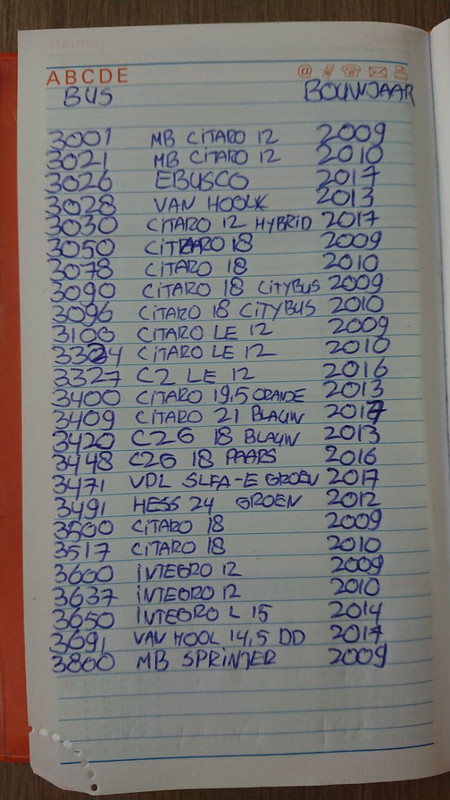 ABCDE
BUS BOUWJAAR
3001 MB CITARO 12 2009
3021 MB CITARO 12 2010
3026 EBUSCO 2017
3028 VAN HOOLK 2013
3030 CITARO 12 HYBRID 2017
3050 CITARO 18 2009
3078 CITARO 18 2010
3090 CITARO 18 CITYBUS 2009
3096 CITARO 18 CITYBUS 2010
3100 CITARO LE 12 2009
3324 CITARO LE 12 2010
3327 C2 LE 12 2016
3400 CITARO 19,5 ORANDE 2013
3409 CITARO 21 BLAUW 2017
3420 C2G 18 BLAUW 2013
3448 C2G 18 PAARS 2016
3471 VDL SLFA-E GROEN 2017
3491 HESS 24 GROEN 2012
3500 CITARO 18 2009
3517 CITARO 18 2010
3600 INTEGRO 12 2009
3637 INTEGRO 12 2010
3650 INTEGRO L 15 2014
3691 VAN HOOL 14,5 DD 2017
3800 MB SPRINTER 2009